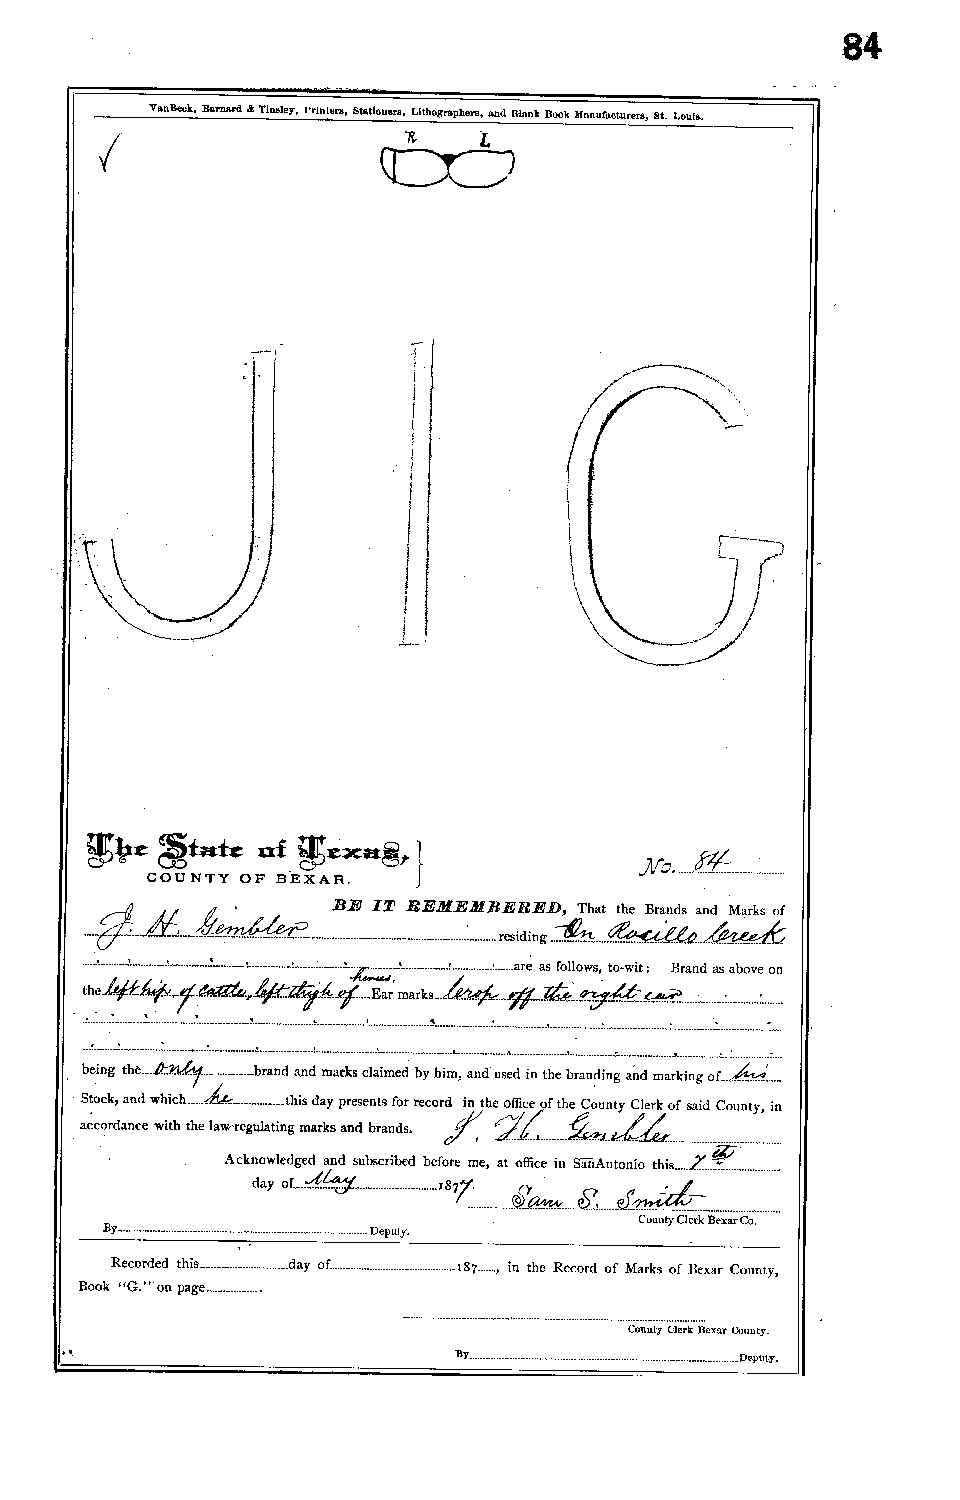 84
VanBeck, Barnard & Tinsley, Printers, Stationers, Lithographers, and Blank Book Manufacturers, St. Louis.
R L
J I G
The State of Texas,
COUNTY OF BEXAR.
No. 84
BE IT REMEMBERED, That the Brands and Marks of
J. H. Gembler residing On Rosillo Creek
are as follows, to-wit: Brand as above on
the left hip of cattle, left thigh of horses, Ear marks Crop off the right ear
being the only brand and marks claimed by him, and used in the branding and marking of his
Stock, and which he this day presents for record in the office of the County Clerk of said County, in
accordance with the law regulating marks and brands. J. H. Gembler
Acknowledged and subscribed before me, at office in San Antonio this 7th
day of May 1877.
Sam S. Smith
County Clerk Bexar Co.
By Deputy.
Recorded this day of 187 , in the Record of Marks of Bexar County,
Book "G." on page .
County Clerk Bexar County.
By Deputy.